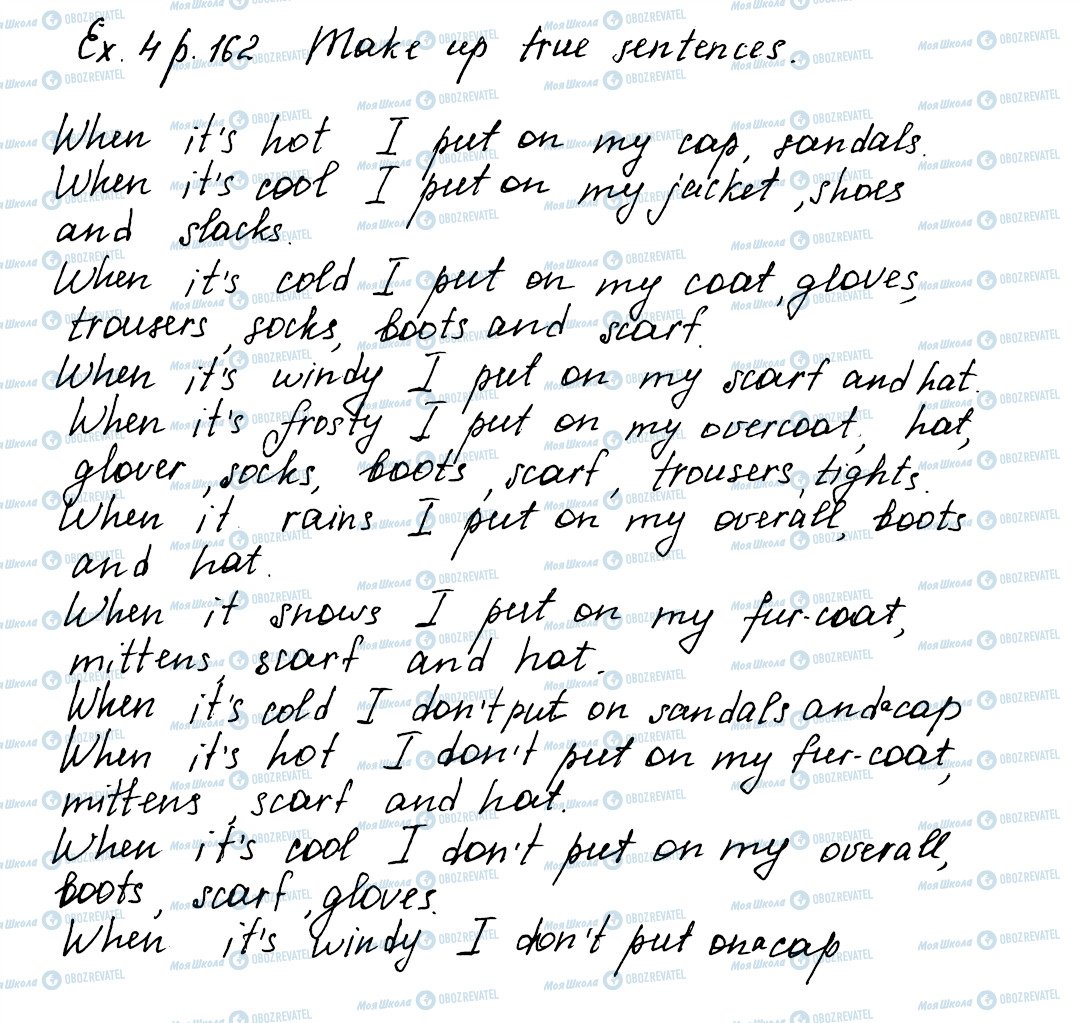 Ex. 4 p. 162 Make up true sentences.
When it's hot I put on my cap, sandals.
When it's cool I put on my jacket, shoes
and slacks.
When it's cold I put on my coat, gloves,
trousers, socks, boots and scarf.
When it's windy I put on my scarf and hat.
When it's frosty I put on my overcoat, hat,
glover, socks, boots, scarf, trousers, tights.
When it rains I put on my overall, boots
and hat.
When it snows I put on my fur-coat,
mittens, scarf and hat.
When it's cold I don't put on sandals and a cap
When it's hot I don't put on my fur-coat,
mittens, scarf and hat.
When it's cool I don't put on my overall,
boots, scarf, gloves.
When it's windy I don't put on a cap